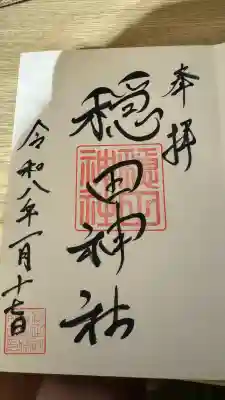 奉拝
穏田神社
穏田
神社
令和八年一月十七日